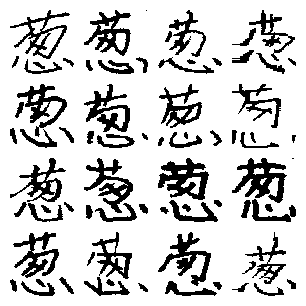 葱葱葱葱
葱葱葱葱
葱葱葱葱
葱葱葱葱